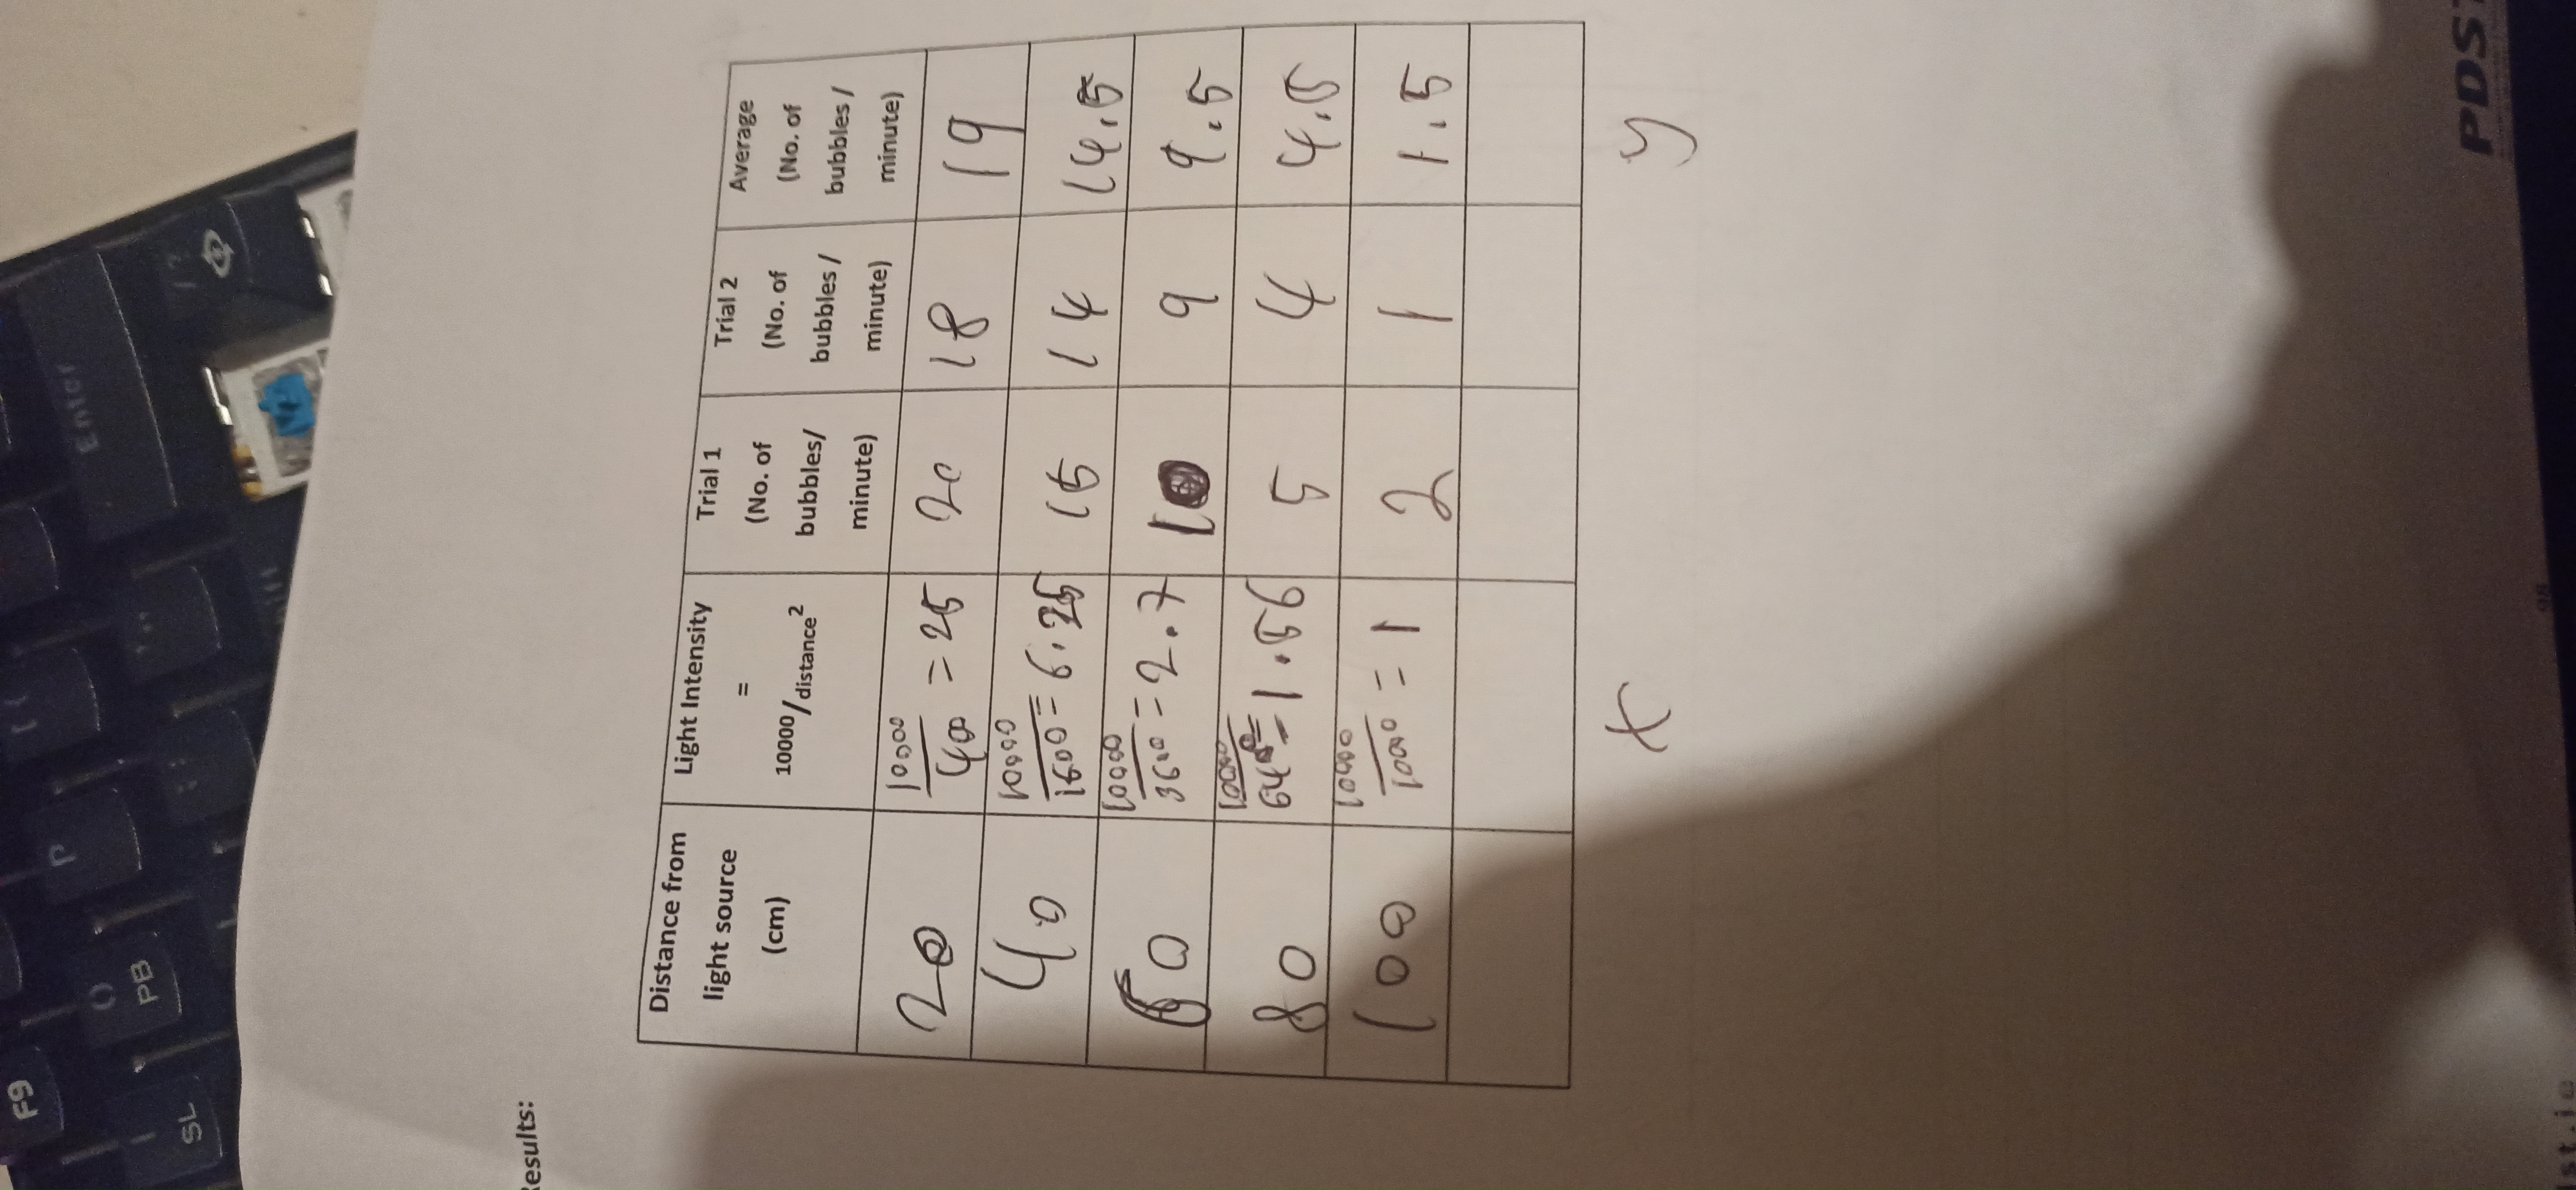 F9
P
Enter
O
PB
SL
L
Results:
Distance from light source (cm) | Light Intensity = 10000/distance2 | Trial 1 (No. of bubbles/ minute) | Trial 2 (No. of bubbles / minute) | Average (No. of bubbles / minute)
20 | 10000/400 = 25 | 20 | 18 | 19
40 | 10000/1600 = 6.25 | 15 | 14 | 14.5
60 | 10000/3600 = 2.7 | 10 | 9 | 9.5
80 | 10000/6400 = 1.56 | 5 | 4 | 4.5
100 | 10000/10000 = 1 | 2 | 1 | 1.5
x y
PDST
98
st.ie